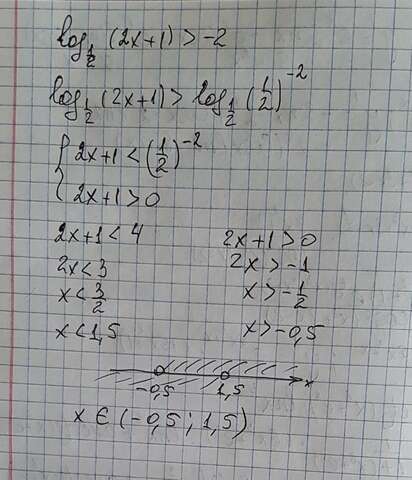 log_{1/2} (2x+1) > -2
log_{1/2} (2x+1) > log_{1/2} (1/2)^{-2}
{ 2x+1 < (1/2)^{-2}
{ 2x+1 > 0
2x+1 < 4
2x < 3
x < 3/2
x < 1,5
2x+1 > 0
2x > -1
x > -1/2
x > -0,5
-0,5 1,5 x
x ∈ (-0,5 ; 1,5)